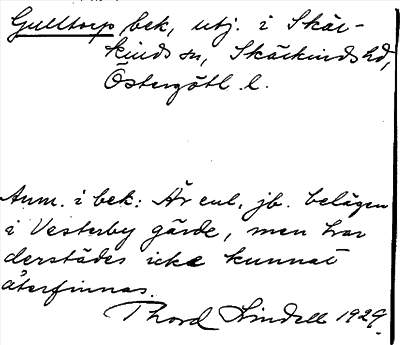 Gulltorp bek, utj. i Skär-
kinds sn, Skärkinds hd,
Östergötl. l.
Anm. i bek: Är enl. jb. belägen
i Vesterby gärde, men har
derstädes icke kunnat
återfinnas.
Thord Lindell 1929.